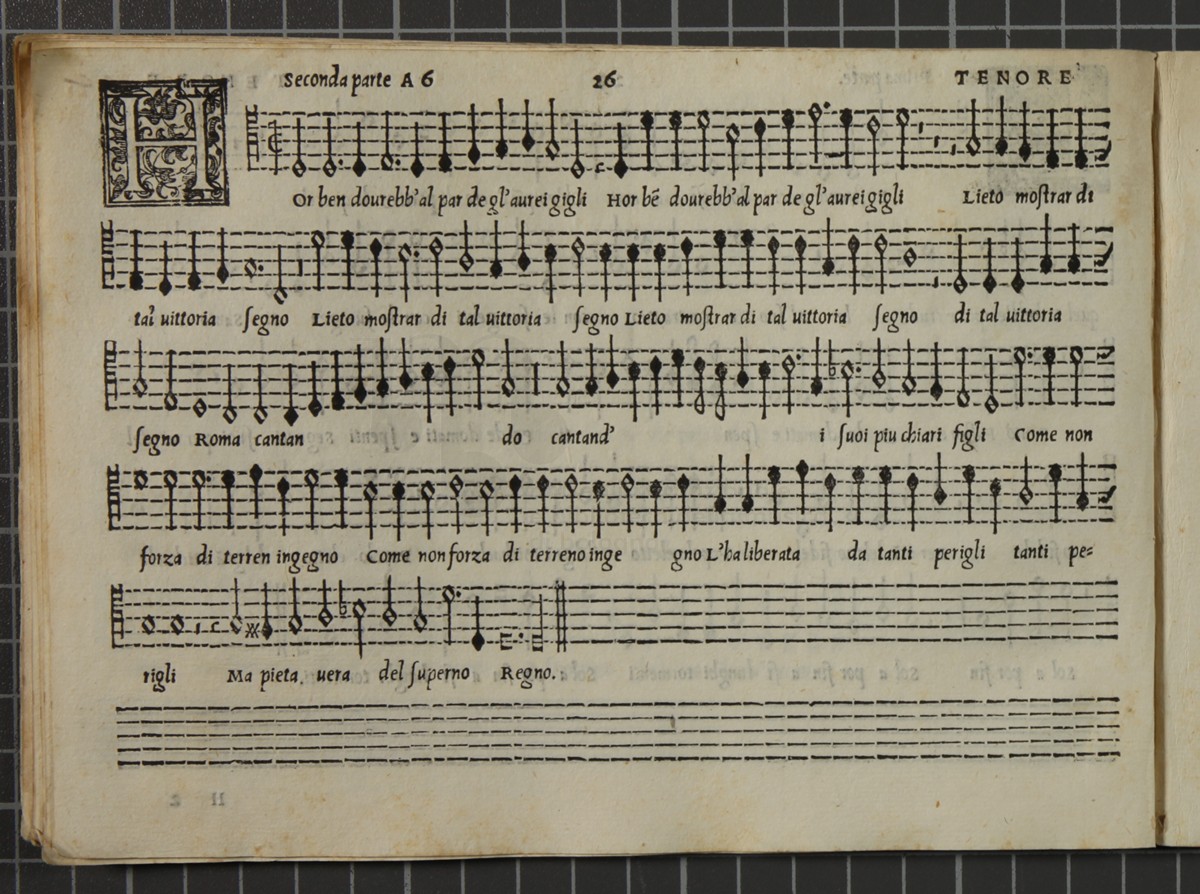 Seconda parte A 6 26 TENORE
H
Or ben dourebb'al par de gl'aurei gigli Hor bẽ dourebb'al par de gl'aurei gigli Lieto moſtrar di
tal uittoria ſegno Lieto moſtrar di tal uittoria ſegno Lieto moſtrar di tal uittoria ſegno di tal uittoria
ſegno Roma cantan do cantand' i ſuoi piu chiari figli Come non
forza di terren ingegno Come non forza di terreno inge gno L'ha liberata da tanti perigli tanti pe=
rigli Ma pieta uera del ſuperno Regno.